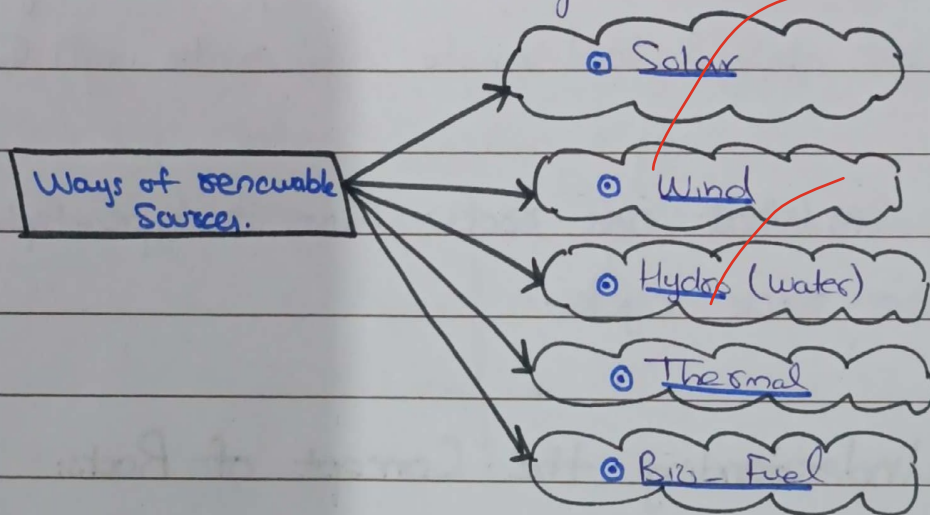 Ways of renewable
Sources.
Solar
Wind
Hydro (water)
Thermal
Bio-Fuel